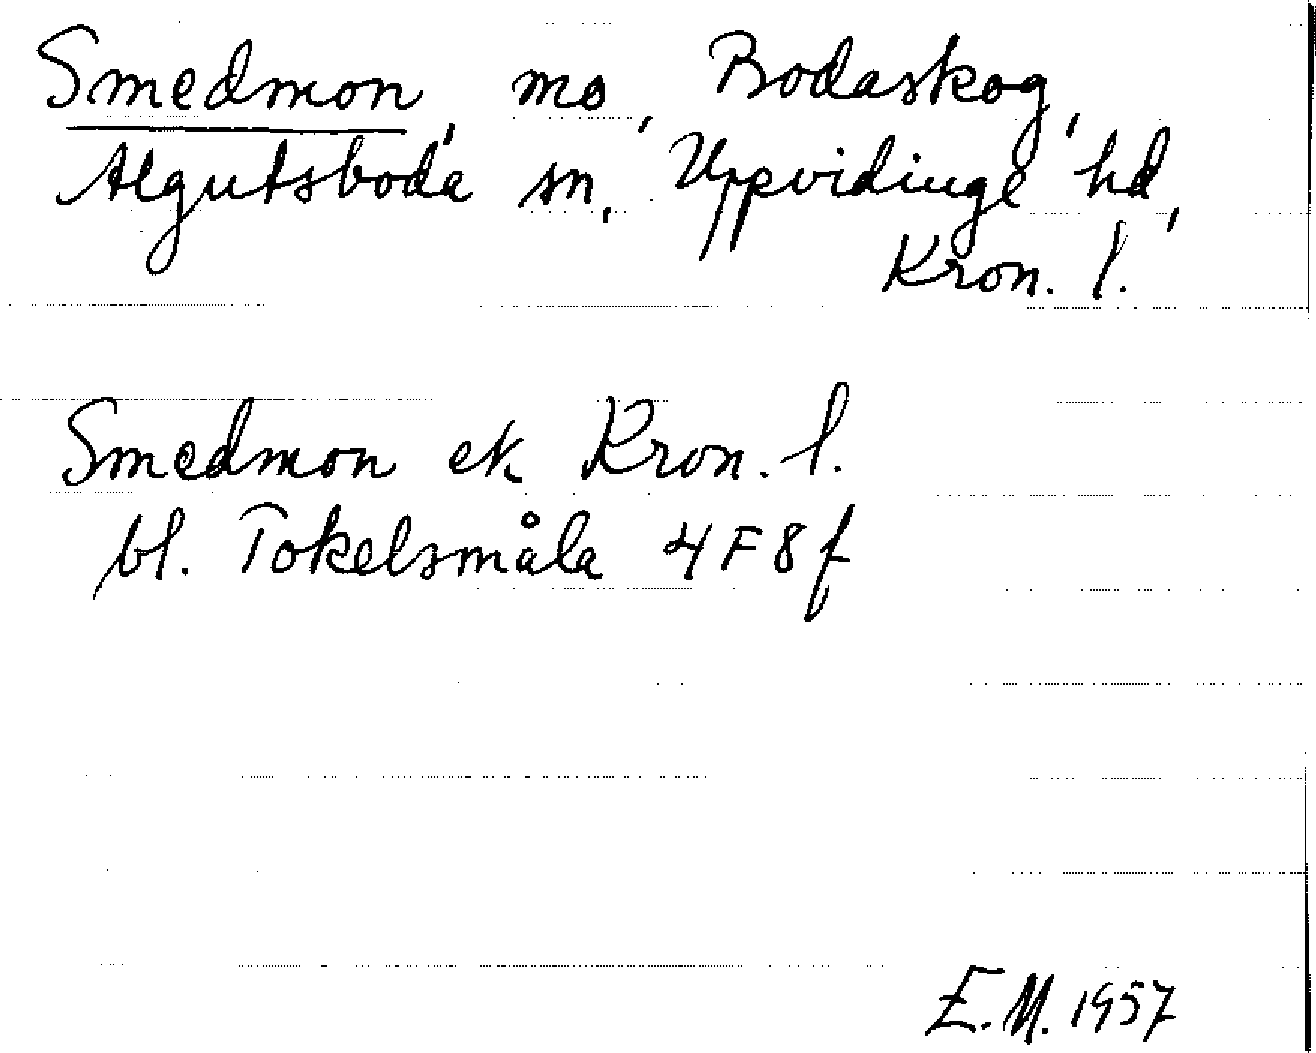 Smedmon, mo, Bodaskog,
Algutsboda sn, Uppvidinge hd,
Kron. l.
Smedmon ek Kron. l.
bl. Tokelsmåla 4F8f
E.M. 1957